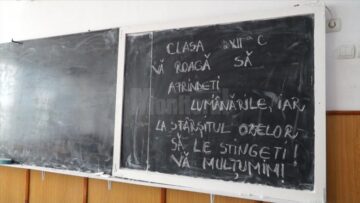 CLASA XII C
VĂ ROAGĂ SĂ
APRINDEȚI
LUMÂNĂRILE, IAR
LA SFÂRȘITUL ORELOR
SĂ LE STINGEȚI!
VĂ MULȚUMIM!